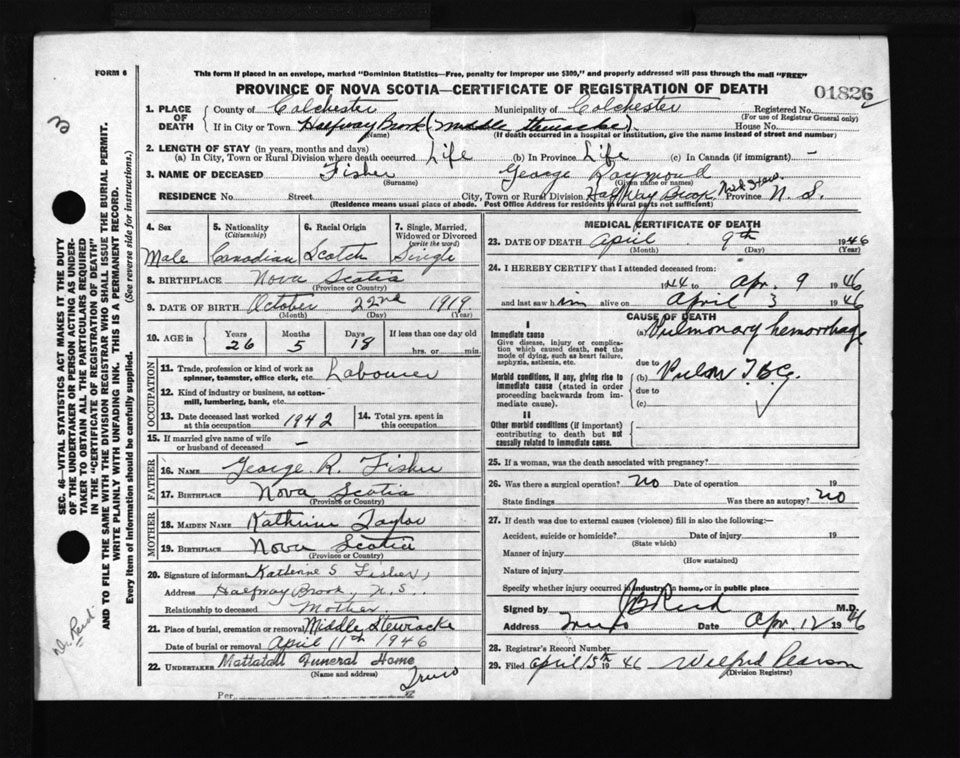 FORM 6
This form if placed in an envelope, marked "Dominion Statistics—Free, penalty for improper use $300," and properly addressed will pass through the mail "FREE"
PROVINCE OF NOVA SCOTIA—CERTIFICATE OF REGISTRATION OF DEATH
01826
3
1. PLACE OF DEATH
County of Colchester Municipality of Colchester Registered No.
(For use of Registrar General only)
If in City or Town Halfway Brook (Middle Stewiacke) House No.
(Name) (If death occurred in a hospital or institution, give the name instead of street and number)
2. LENGTH OF STAY (in years, months and days)
(a) In City, Town or Rural Division where death occurred Life (b) In Province Life (c) In Canada (if immigrant) —
3. NAME OF DECEASED Fisher George Raymond
(Surname) (Given name or names)
RESIDENCE No. Street City, Town or Rural Division Half Way Brook, Mid Stew. Province N. S.
(Residence means usual place of abode. Post Office Address for residents in rural parts not sufficient)
4. Sex Male
5. Nationality (Citizenship) Canadian
6. Racial Origin Scotch
7. Single, Married, Widowed or Divorced (write the word) Single
8. BIRTHPLACE Nova Scotia
(Province or Country)
9. DATE OF BIRTH October 22nd 1919
(Month) (Day) (Year)
10. AGE in Years 26 Months 5 Days 18 If less than one day old hrs. or min.
OCCUPATION
11. Trade, profession or kind of work as spinner, teamster, office clerk, etc. Labourer
12. Kind of industry or business, as cotton-mill, lumbering, bank, etc.
13. Date deceased last worked at this occupation 1942
14. Total yrs. spent in this occupation
15. If married give name of wife or husband of deceased —
FATHER
16. NAME George R. Fisher
17. BIRTHPLACE Nova Scotia
(Province or Country)
MOTHER
18. MAIDEN NAME Kathrine Taylor
19. BIRTHPLACE Nova Scotia
(Province or Country)
20. Signature of informant Katherine S Fisher,
Address Halfway Brook, N.S.
Relationship to deceased Mother
21. Place of burial, cremation or removal Middle Stewiacke
Date of burial or removal April 11th 1946
22. UNDERTAKER Mattatall Funeral Home
(Name and address) Truro
Per
MEDICAL CERTIFICATE OF DEATH
23. DATE OF DEATH April 9th 1946
(Month) (Day) (Year)
24. I HEREBY CERTIFY that I attended deceased from:
1944 to Apr. 9 1946
and last saw him alive on April 3 1946
CAUSE OF DEATH
I
Immediate cause
Give disease, injury or complication which caused death, not the mode of dying, such as heart failure, asphyxia, asthenia, etc.
(a) Pulmonary hemorrhage
due to
Morbid conditions, if any, giving rise to immediate cause (stated in order proceeding backwards from immediate cause).
(b) Pulm T.B.C.
due to
(c)
II
Other morbid conditions (if important) contributing to death but not causally related to immediate cause.
25. If a woman, was the death associated with pregnancy?
26. Was there a surgical operation? no Date of operation 19
State findings Was there an autopsy? no
27. If death was due to external causes (violence) fill in also the following:—
Accident, suicide or homicide? Date of injury 19
(State which)
Manner of injury
(How sustained)
Nature of injury
Specify whether injury occurred in industry, in home, or in public place
Signed by Reid M.D.
Address Truro Date Apr. 12 1946
28. Registrar's Record Number
29. Filed April 15th 1946 Wilfred Pearson
(Division Registrar)
SEC. 46—VITAL STATISTICS ACT MAKES IT THE DUTY
OF THE UNDERTAKER OR PERSON ACTING AS UNDER-
TAKER TO OBTAIN ALL THE PARTICULARS REQUIRED
IN THE "CERTIFICATE OF REGISTRATION OF DEATH"
AND TO FILE THE SAME WITH THE DIVISION REGISTRAR WHO SHALL ISSUE THE BURIAL PERMIT.
WRITE PLAINLY WITH UNFADING INK. THIS IS A PERMANENT RECORD.
Every item of information should be carefully supplied. (See reverse side for instructions.)
Dr. Reid